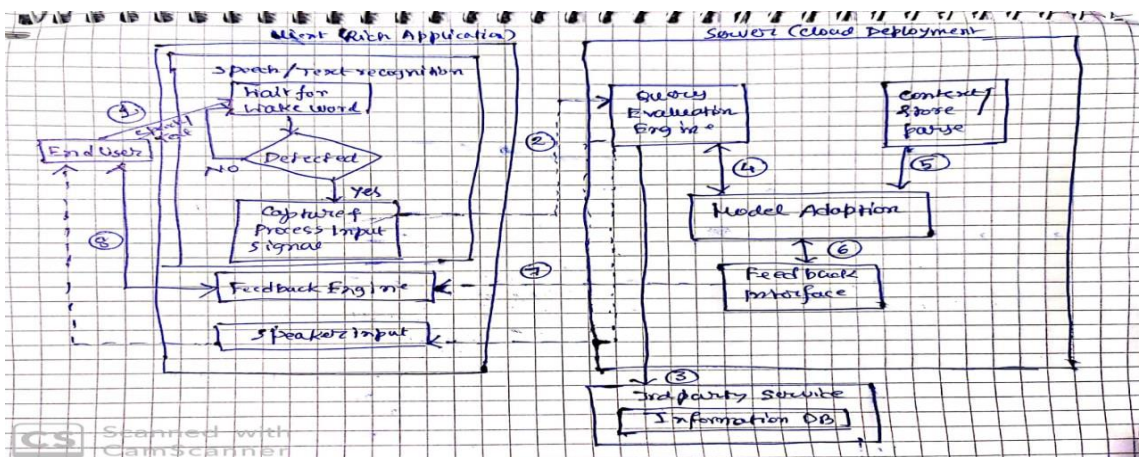 Client (Rich Application)
Server (Cloud Deployment
Speech/Text recognition
Wait for
Wake Word
1
Speech/
Text
End User
Detected
NO
Yes
Capture &
Process Input
Signal
8
Feedback Engine
Speaker Input
2
7
Query
Evaluation
Engine
Context/
Store
Parse
4
5
Model Adaption
6
Feedback
Interface
3
3rd party Service
Information DB
CS Scanned with
CamScanner